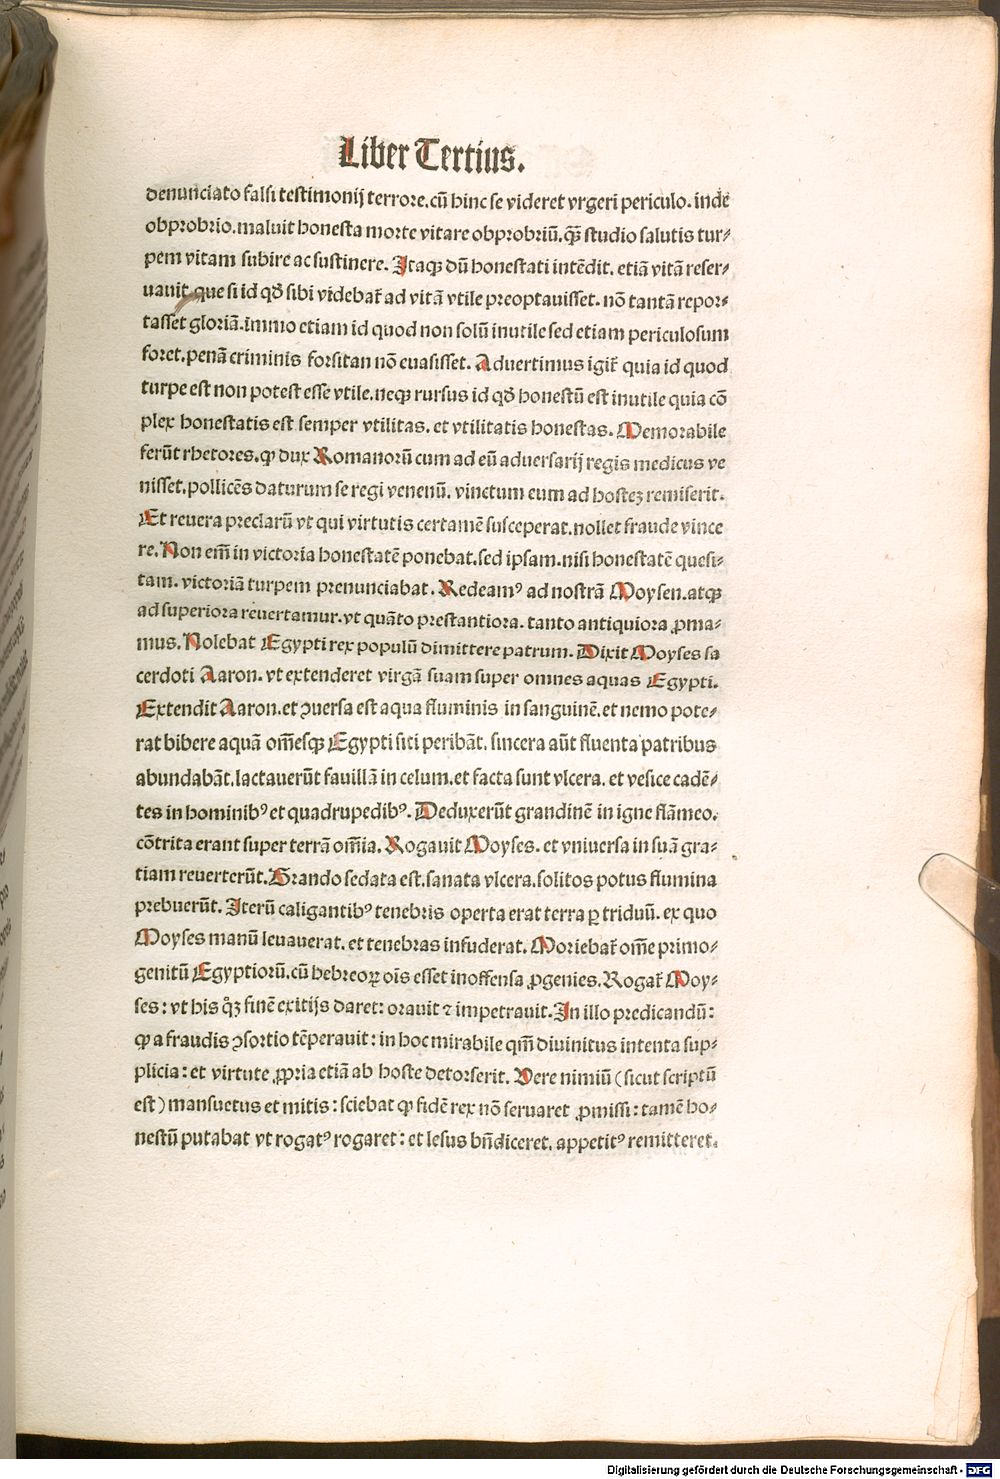 Liber Tertius.
denunciato falsi testimonij terrore.cū hinc se videret vrgeri periculo. inde
obprobrio.maluit honesta morte vitare obprobriū.q̄ꝫ studio salutis tur⸗
pem vitam subire ac sustinere. Itaqꝫ dū honestati intēdit. etiā vitā reser⸗
uauit.que si id qd̄ sibi videbat̄ ad vitā vtile preoptauisset. nō tantā repor⸗
tasset gloriā.immo etiam id quod non solū inutile sed etiam periculosum
foret.penā criminis forsitan nō euasisset. Aduertimus igit̄ quia id quod
turpe est non potest esse vtile.neqꝫ rursus id qd̄ honestū est inutile quia cō
plex honestatis est semper vtilitas. et vtilitatis honestas. Memorabile
ferūt rhetores. ꝙ dux Romanorū cum ad eū aduersarij regis medicus ve
nisset.pollicēs daturum se regi venenū. vinctum eum ad hosteꝫ remiserit.
Et reuera preclarū vt qui virtutis certamē susceperat.nollet fraude vince
re. Non em̄ in victoria honestatē ponebat.sed ipsam.nisi honestatē quesi⸗
tam. victoriā turpem prenunciabat. Redeamꝰ ad nostrā Moysen.atqꝫ
ad superiora reuertamur.vt quāto prestantiora. tanto antiquiora ꝓma⸗
mus. Nolebat Egypti rex populū dimittere patrum. Dixit Moyses sa
cerdoti Aaron. vt extenderet virgā suam super omnes aquas Egypti.
Extendit Aaron.et ꝯuersa est aqua fluminis in sanguinē.et nemo pote⸗
rat bibere aquā om̄esqꝫ Egypti siti peribāt. sincera aūt fluenta patribus
abundabāt.lactauerūt fauillā in celum.et facta sunt vlcera. et vesice cadē⸗
tes in hominibꝰ et quadrupedibꝰ. Deduxerūt grandinē in igne flāmeo.
cōtrita erant super terrā om̄ia. Rogauit Moyses. et vniuersa in suā gra⸗
tiam reuerterūt.Grando sedata est.sanata vlcera.solitos potus flumina
prebuerūt. Iterū caligantibꝰ tenebris operta erat terra ꝑ triduū. ex quo
Moyses manū leuauerat. et tenebras infuderat. Moriebat̄ om̄e primo⸗
genitū Egyptiorū.cū hebreoꝝ oīs esset inoffensa ꝓgenies. Rogat̄ Moy⸗
ses : vt his qͦꝫ finē exitijs daret: orauit ⁊ impetrauit. In illo predicandū :
ꝙ a fraudis ꝯsortio tēperauit : in hoc mirabile qm̄ diuinitus intenta sup⸗
plicia : et virtute ꝓpria etiā ab hoste detorserit. Vere nimiū (sicut scriptū
est) mansuetus et mitis : sciebat ꝙ fidē rex nō seruaret ꝓmissi : tamē ho⸗
nestū putabat vt rogatꝰ rogaret : et lesus bn̄diceret. appetitꝰ remitteret.
Digitalisierung gefördert durch die Deutsche Forschungsgemeinschaft - DFG